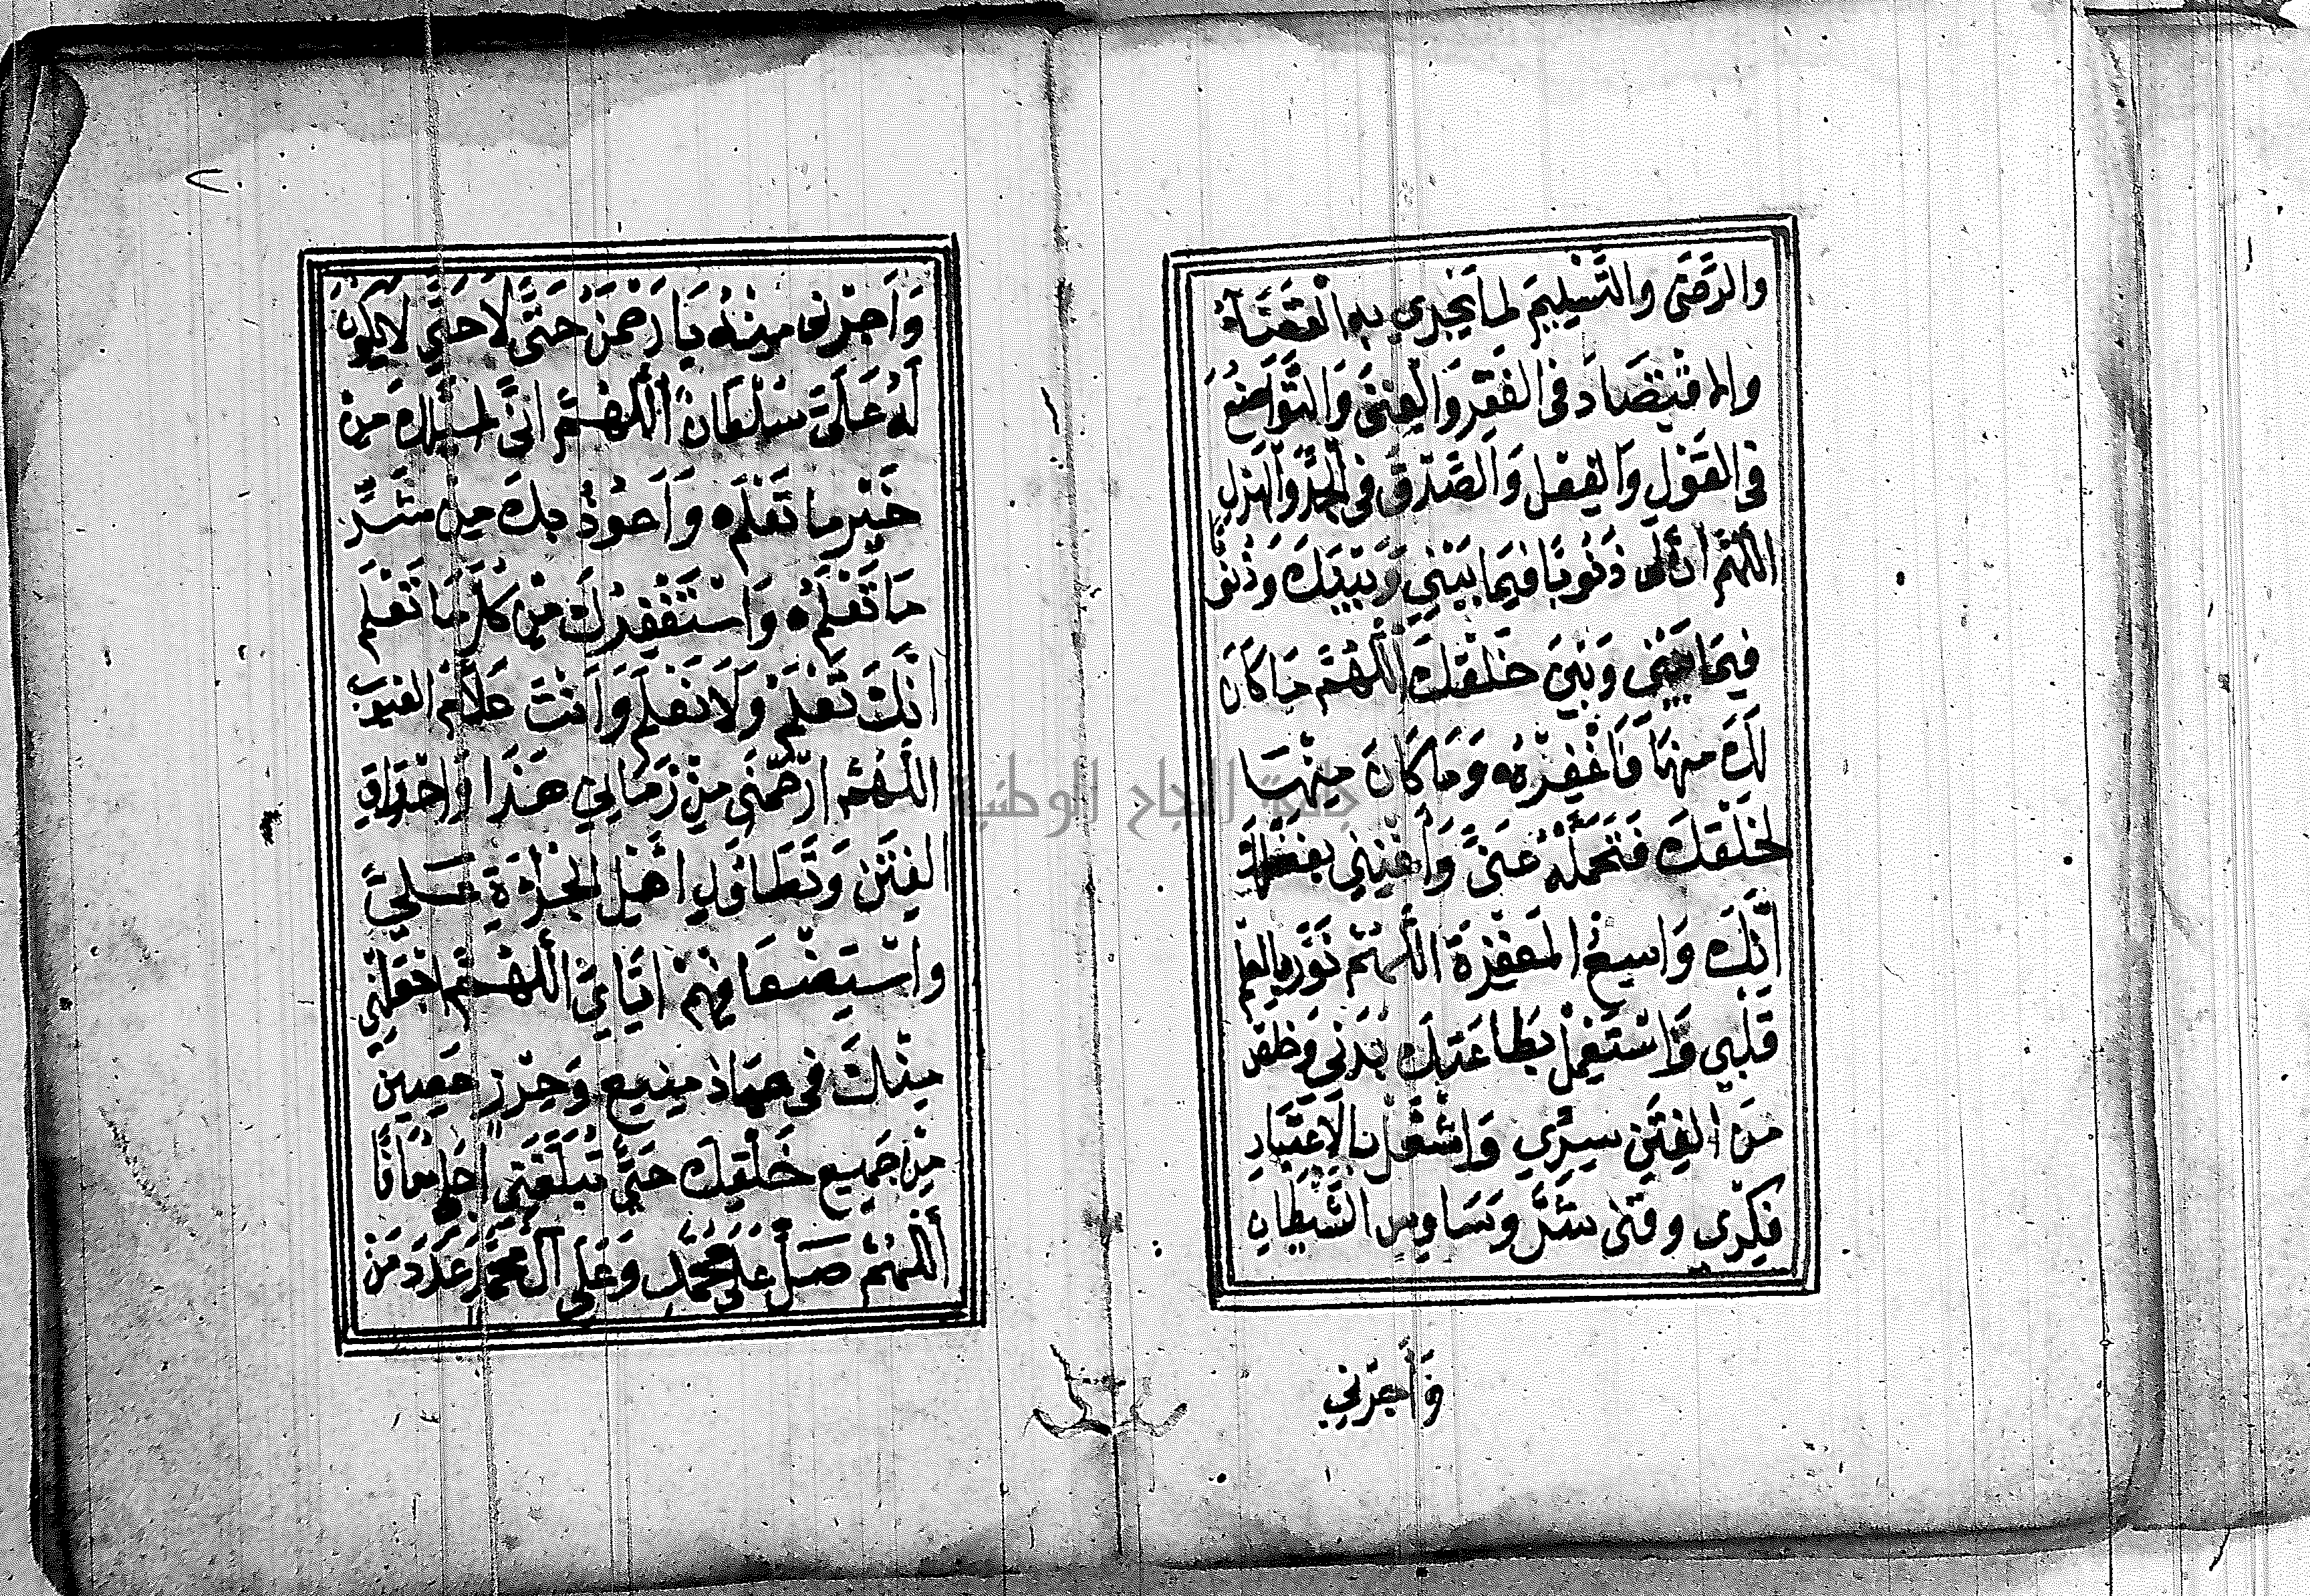 والرَّضَى والتَّسْلِيمَ لِمَا يَجْرِي بِهِ الْقَضَآءُ
والاقْتِصَادَ فِى الفَقْرِ وَالْغِنَى وَالتَّوَاضُعَ
فِى القَوْلِ وَالْفِعْلِ وَالصِّدْقَ فِى الْجِدِّ وَالْهَزْلِ
اللَّهُمَّ انَّ لِى ذُنُوبًا فِيمَا بَيْنِي وَبَيْنَكَ وَذُنُوبًا
فِيمَا بَيْنِي وَبَيْنَ خَلْقِكَ اللَّهُمَّ مَا كَانَ
لَكَ مِنهَا فَاغْفِرْهُ وَمَا كَانَ مِنْهَا
لِخَلْقِكَ فَتَحَمَّلْهُ عَنِّى وَأَغْنِنِي بِفَضْلِكَ
انَّكَ وَاسِعُ المَغْفِرَةِ اللَّهُمَّ نَوِّرْ بِالعِلْمِ
قَلْبِي وَاسْتَعْمِلْ بِطَاعَتِكَ بَدَنِي وَخَلِّصْ
مِنَ الفِتَنِ سِرِّي وَاشْغَلْ بِالاعْتِبَارِ
فِكْرِي وقِنِى شَرَّ وَسَاوِسِ الشَّيْطَانِ
وَأَجِرْنِي
٢
وَاَجِرْنِى مِنْهُ يَا رَحْمَنُ حَتَّى لَا حَتَّى لَا يَكُونَ
لَهُ عَلَىَّ سُلْطَانٌ اَللَّهُمَّ انِّى اسْئَلُكَ مِنْ
خَيْرِ مَا تَعْلَمُ وَاَعُوذُ بِكَ مِنْ شَرِّ
مَا تَعْلَمُ وَاسْتَغْفِرُكَ مِنْ كُلِّ مَا تَعْلَمُ
انَّكَ تَعْلَمُ وَلَا نَعْلَمُ وَاَنْتَ عَلَّامُ الغُيُوبِ
اللَّهُمَّ ارْحَمْنِي مِنْ زَمَانِي هَذَا وَاحْدَاقِ
الفِتَنِ وَتَطَاوُلِ اهْلِ الجُرْءَةِ عَلَيَّ
وَاسْتِضْعَافِهِمْ ايَّايَ اَللَّهُمَّ اجْعَلْنِي
مِنْكَ فِى عِيَاذٍ مَنِيعٍ وَحِرْزٍ حَصِينٍ
مِنْ جَمِيعِ خَلْقِكَ حَتَّى تُبَلِّغَنِي اجَلِي مُعَافًا
اَللَّهُمَّ صَلِّ عَلَى مُحَمَّدٍ وَعَلَى آلِ مُحَمَّدٍ عَدَدَ مَنْ
جامعة النجاح الوطنية